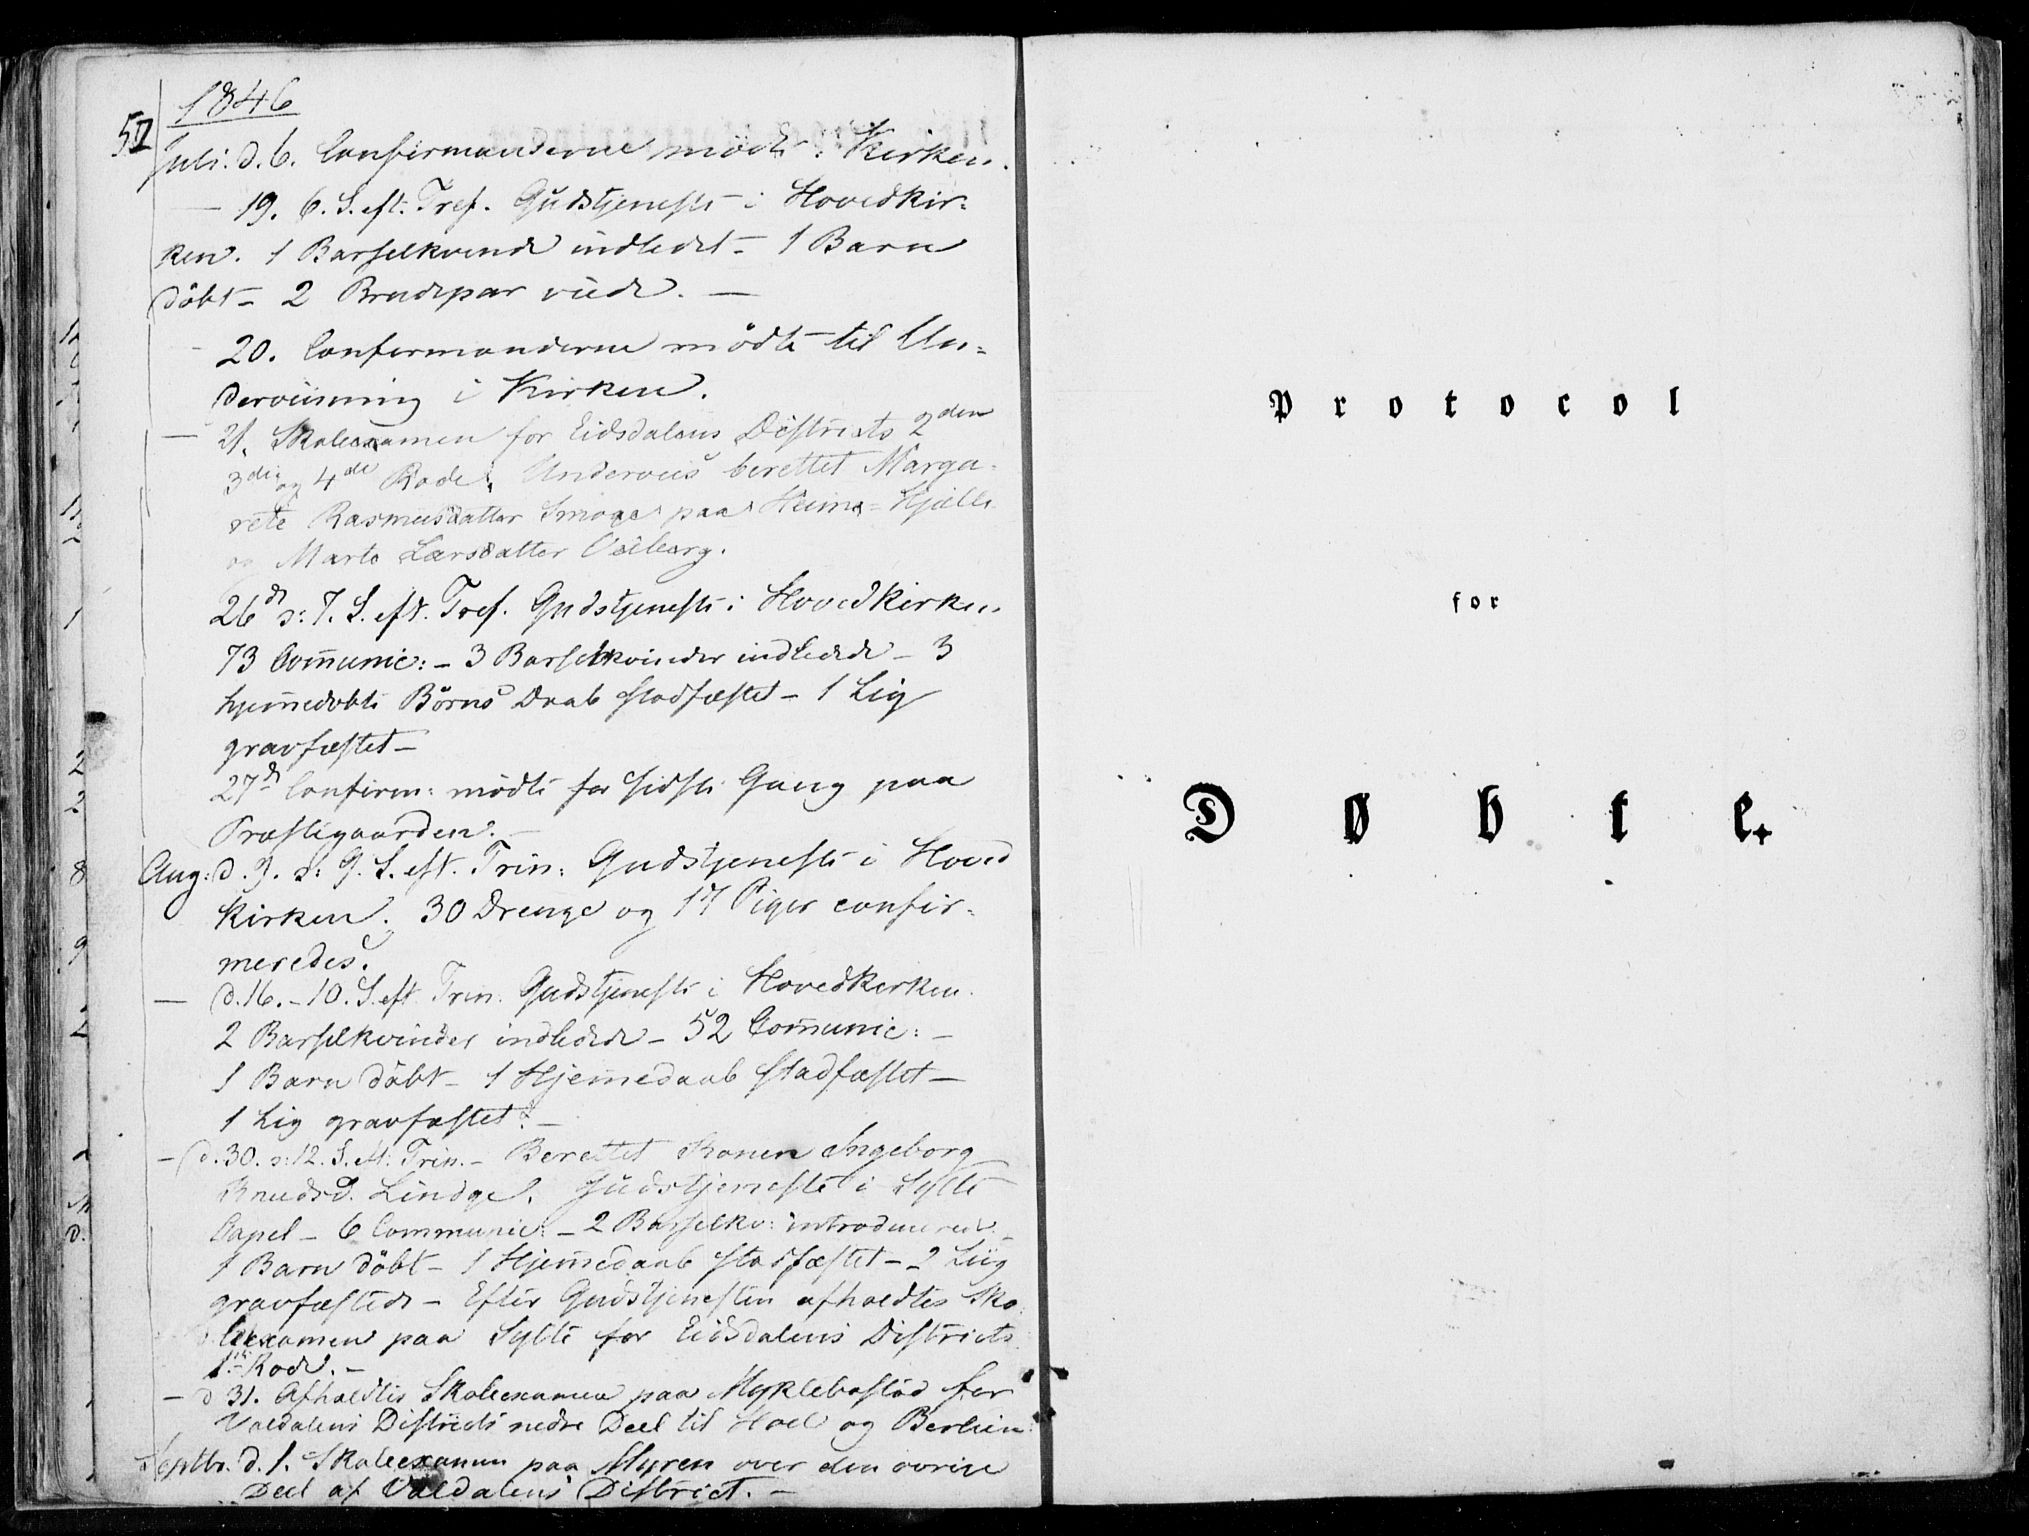 1846
Juli. d. 6. Confirmanderne mödte i Kirken.
— 19. 6. S. eft. Tref. Gudstjeneste i Hovedkir-
ken. 1 Barselkvinde indledet – 1 Barn
döbt – 2 Brudepar viede. —
20. Confirmanderne mödte til Un-
derviisning i Kirken.
— 21. Skoleexamen for Eidsdalens Districts 2den
3die og 4de Rode. Underveis berettet Marga-
rete Rasmusdatter Smoge paa Heims-Hjelle
og Marte Larsdatter
26de s: 7. S. eft. Tref. Gudstjeneste i Hovedkirken
73 Com̄unic: – 3 Barselkvinder indledede – 3
hjem̄edöbte Börns Daab stadfæstet – 1 Lig
gravfæstet –
27de Confirm: mödte for sidste Gang paa
Præstegaarden. –
Aug: d. 9. s: 9. S. eft. Trin: Gudstjeneste i Hoved
Kirken. 30 Drenge og 17 Piger confir-
meredes.
— d. 16. – 10. S. eft. Trin. Gudstjeneste i Hovedkirken.
2 Barselkvinder indledede – 52 Com̄unic: –
1 Barn döbt – 1 Hjem̄edaab stadfæstet –
1 Lig gravfæstet. –
– d. 30. s: 12. S. eft: Trin. – Berettet Konen Ingeborg
Knudsd. Lindge. Gudstjeneste i Sylte
Capel – 6 Communic: – 2 Barselkv: introducerede –
1 Barn döbt – 1 Hjem̄edaab stadfæstet – 2 Liig
gravfæstede – Efter Gudstjenesten afholdtes Sko-
leexamen paa Sylte for Eidsdalens Districts
1ste Rode. –
– d 31. Afholdtes Skoleexamen paa Myklebostad for
Valdalens Districts nedre Deel til Hoel og Berlien
Septbr. d. 1. Skoleexamen paa Myren over den øvrige
Deel af Valdalens District. –
Protocol
for
Døbte.